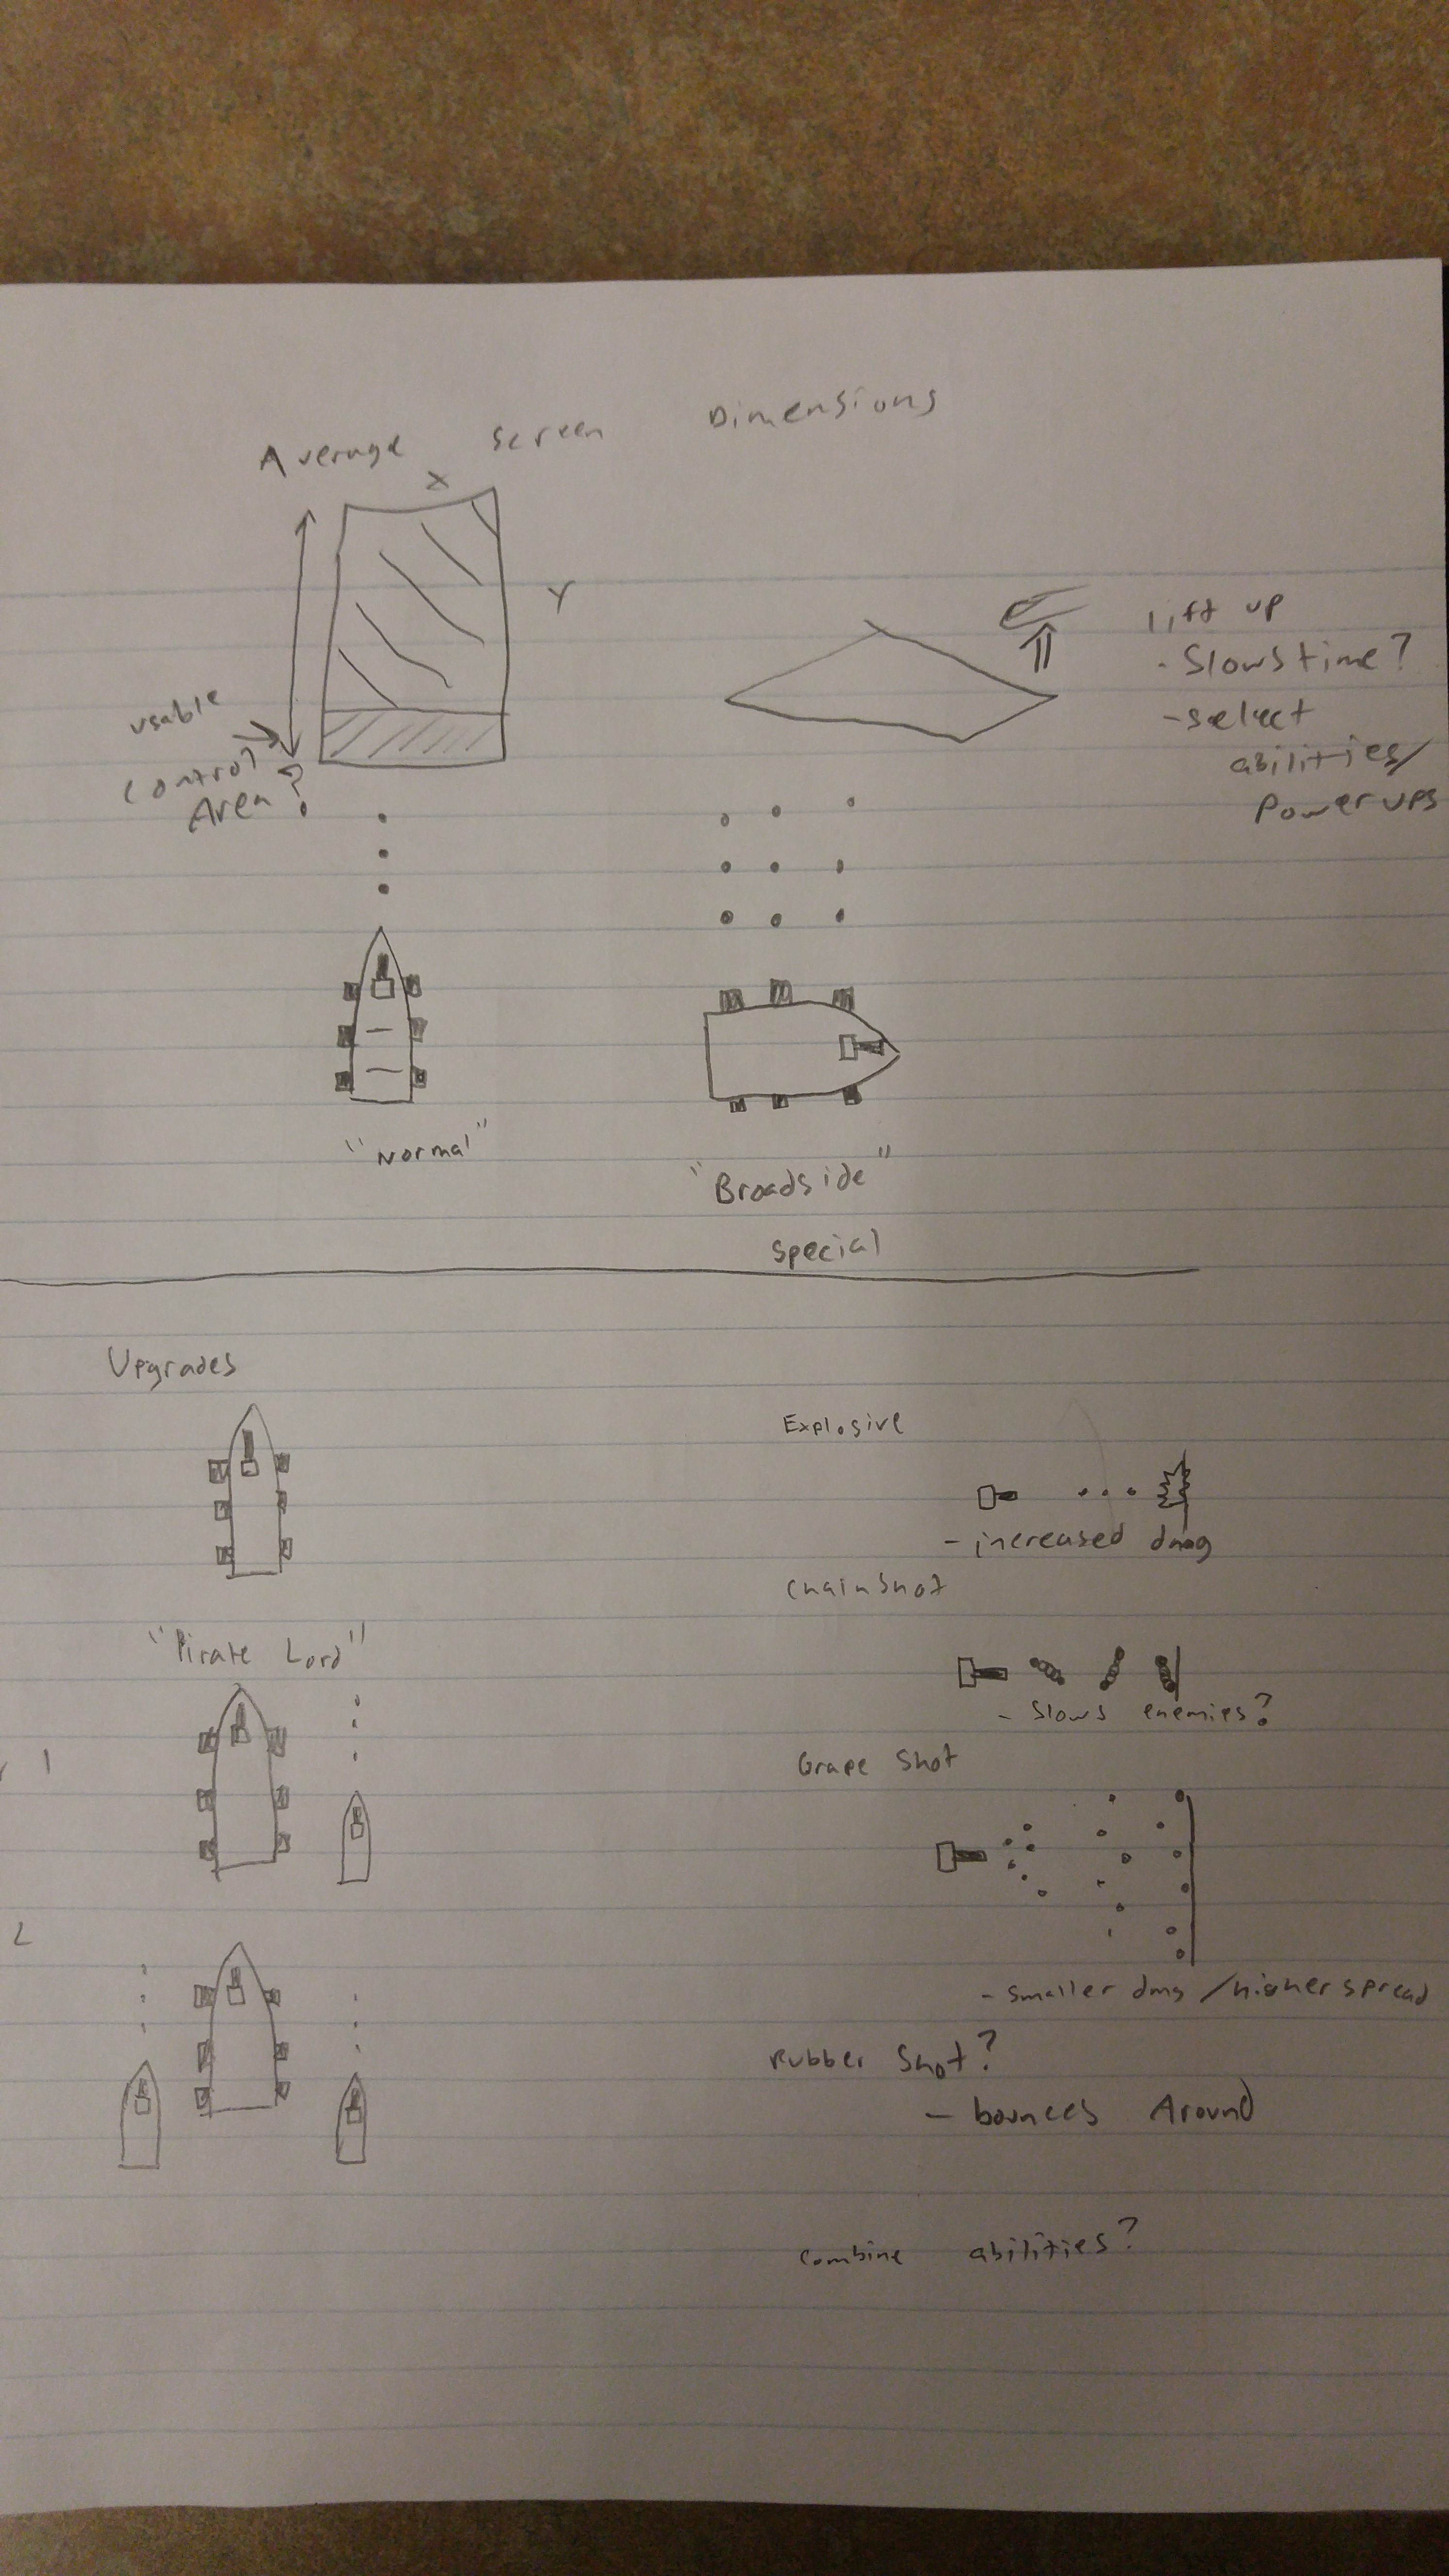 Average Screen Dimensions
X
Y
usable
control
Area?
lift up
- Slows time?
- select
abilities/
Power ups
"Normal"
"Broadside"
special
Upgrades
"Pirate Lord"
1
2
Explosive
- increased dmg
Chain Shot
- Slows enemies?
Grape Shot
- smaller dmg / higher spread
Rubber Shot?
- bounces Around
combine abilities?